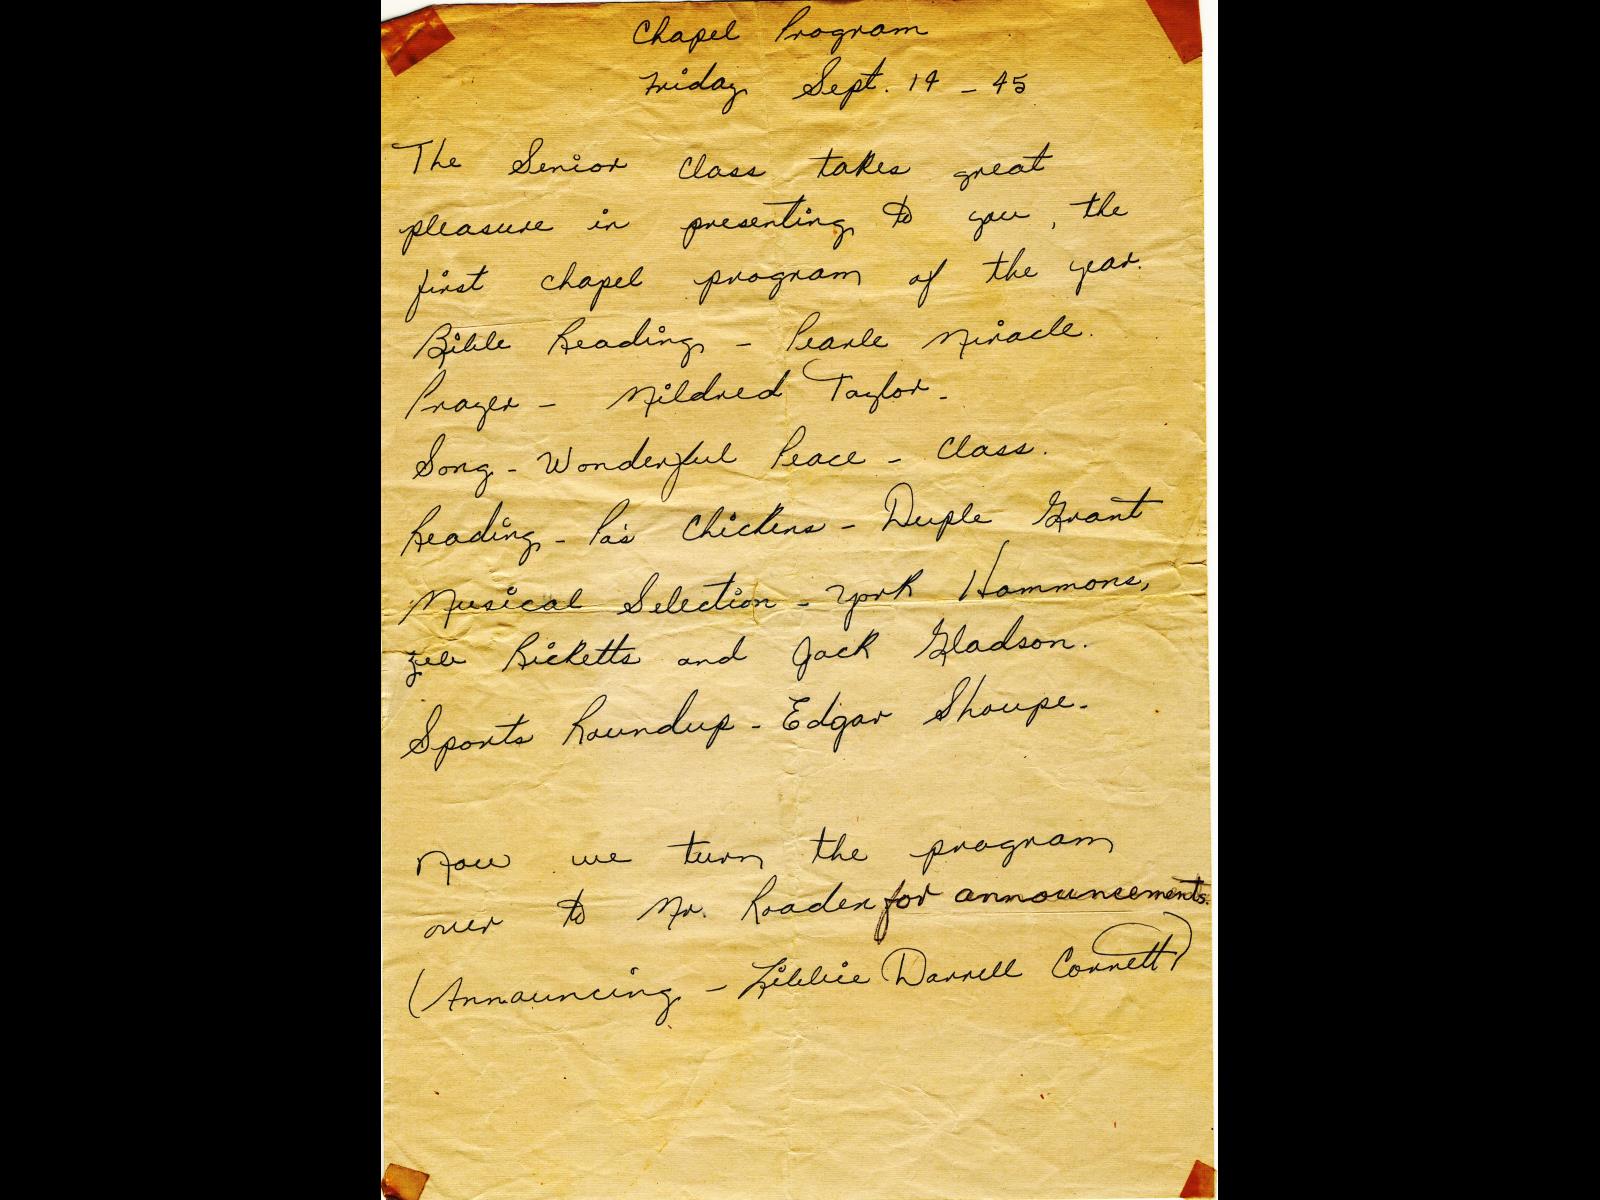 Chapel Program
Friday Sept. 14 - 45
The Senior Class takes great
pleasure in presenting to you, the
first chapel program of the year.
Bible Reading - Pearle Miracle.
Prayer - Mildred Taylor.
Song - Wonderful Peace - Class.
Reading - Pa's Chickens - Duple Grant
Musical Selection - York Hammons,
Zeb Ricketts and Jack Gladson.
Sports Roundup - Edgar Shoupe.
Now we turn the program
over to Mr. Roaden for announcements.
(Announcing - Libbie Darrell Cornett)